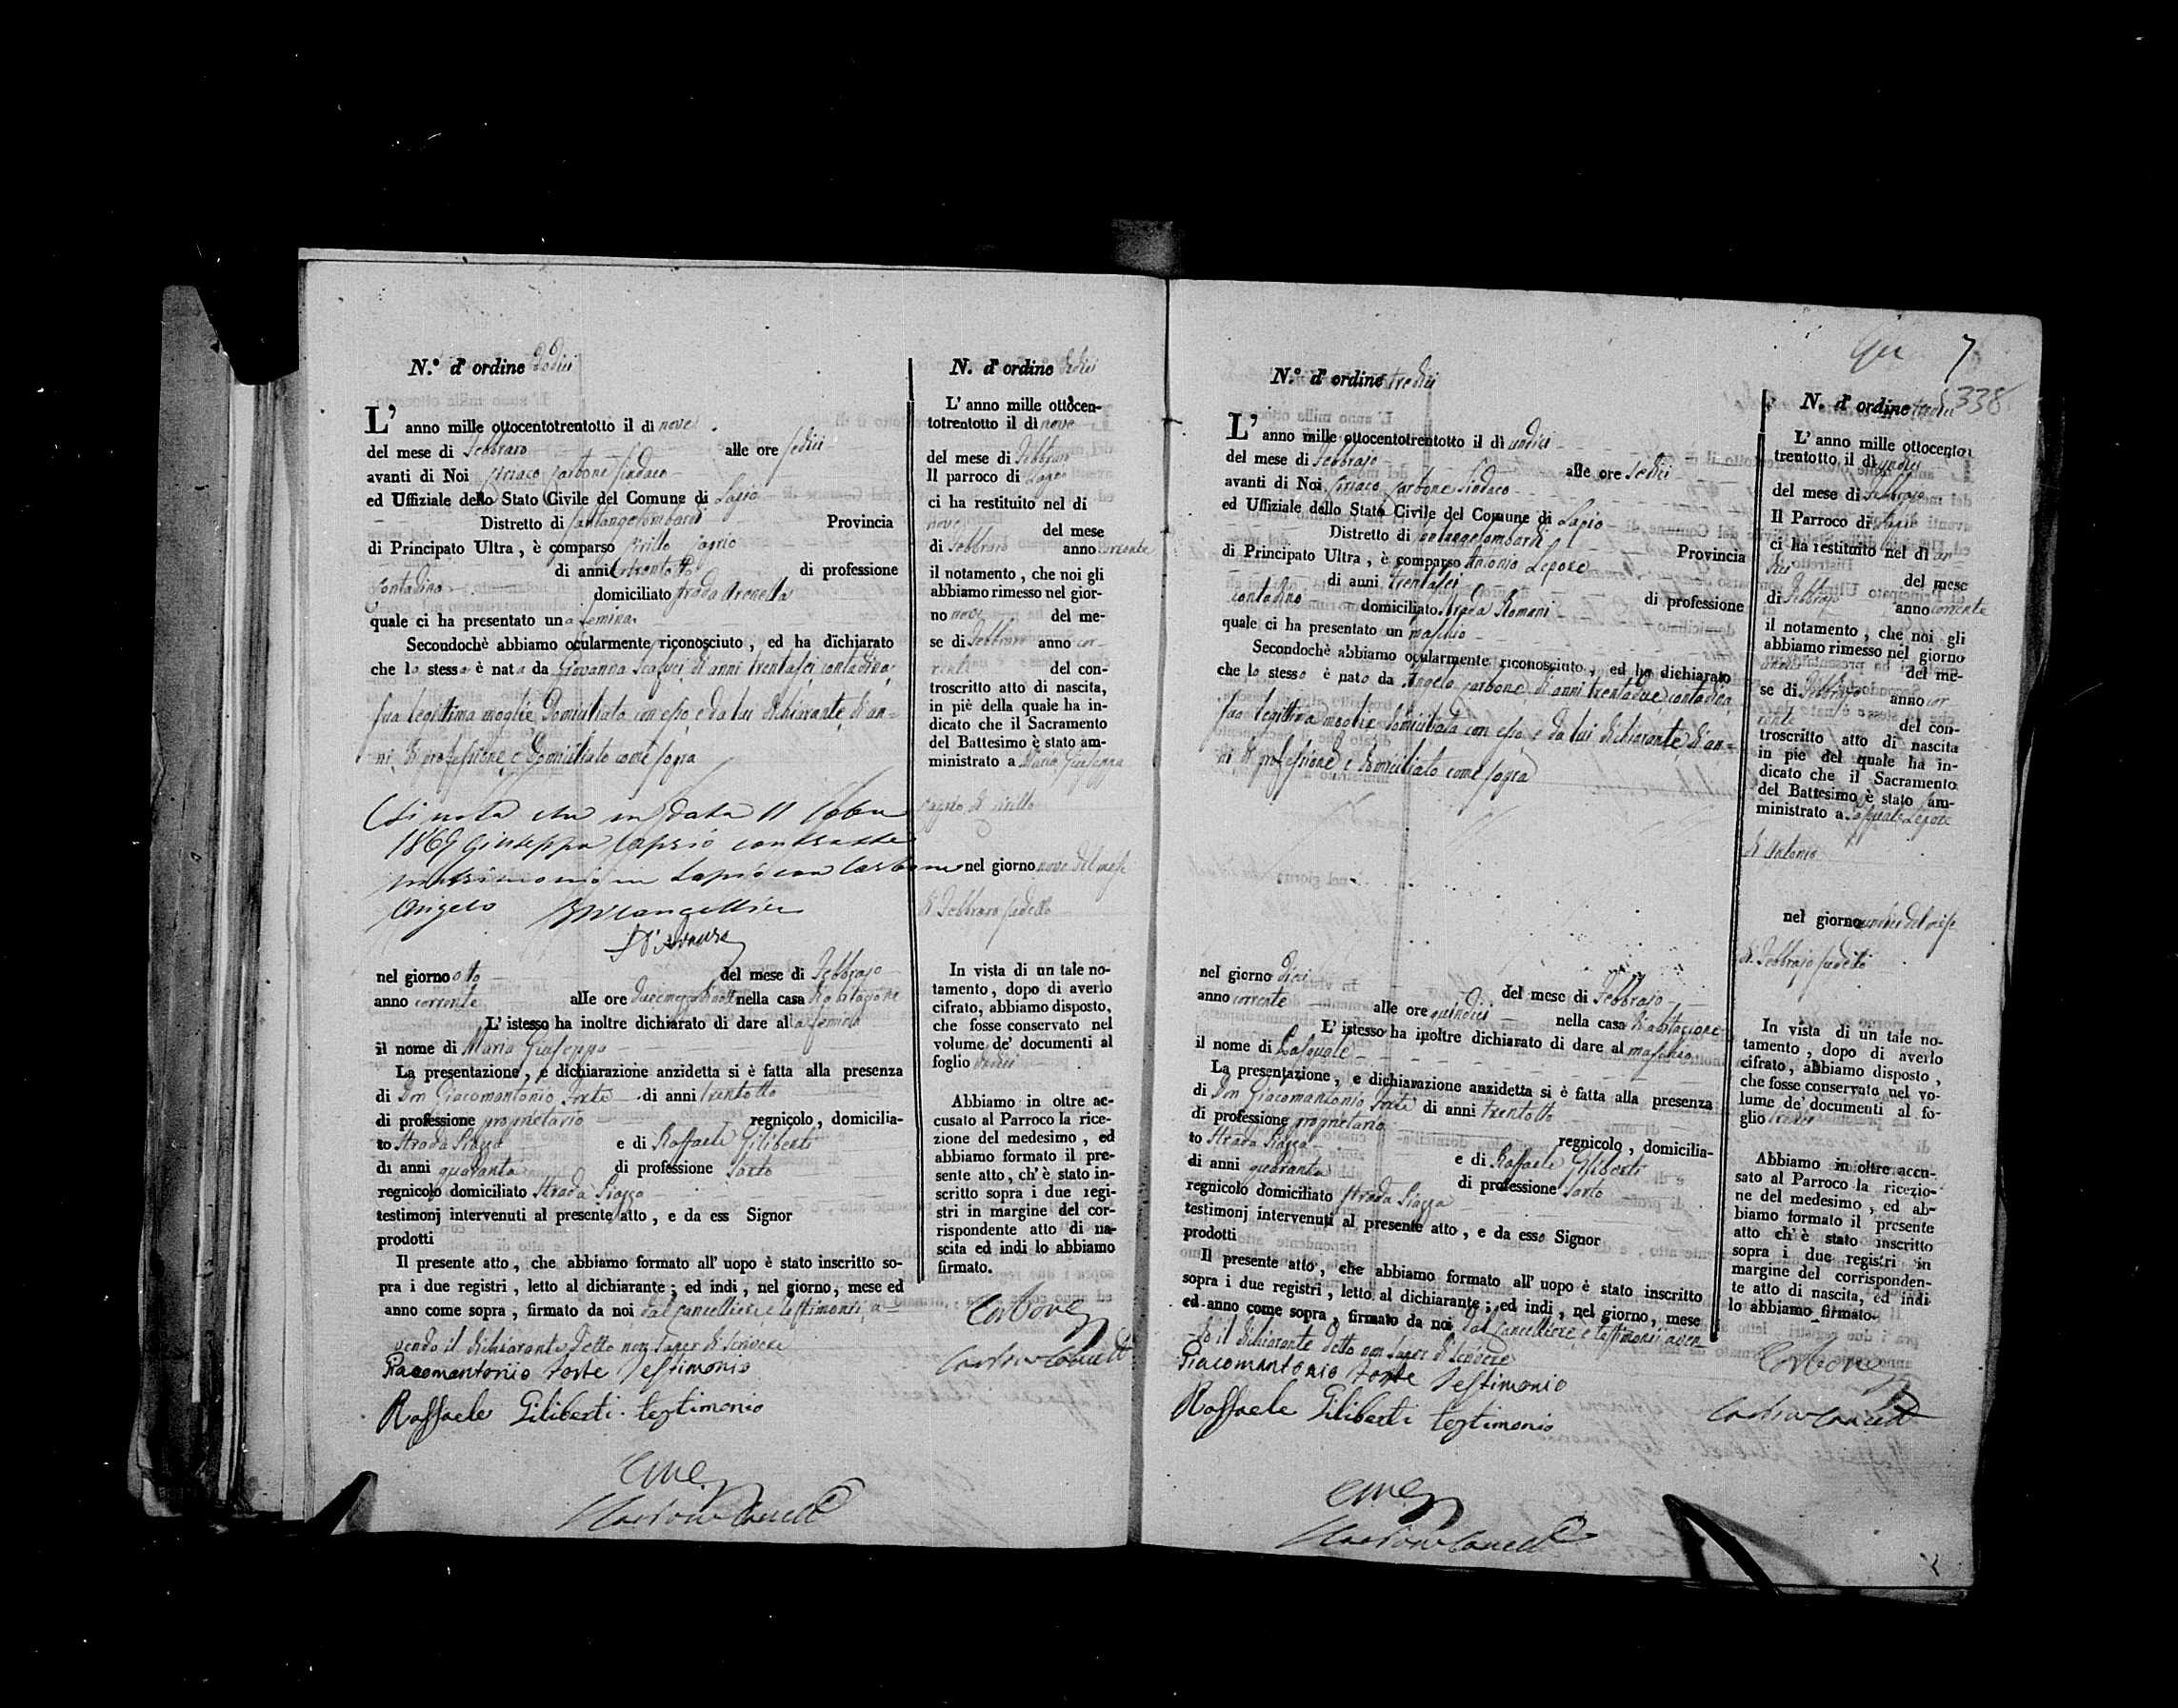 N.° d' ordine Dodici
L' anno mille ottocentotrentotto il dì nove
del mese di Febbraro alle ore sedici
avanti di Noi Ciriaco Carbone Sindaco
ed Uffiziale dello Stato Civile del Comune di Lapio
Distretto di Santangelombardi Provincia
di Principato Ultra, è comparso Cirillo Caprio
di anni trentotto di professione
contadino domiciliato strada Arenella
quale ci ha presentato una femina
Secondochè abbiamo ocularmente riconosciuto, ed ha dichiarato
che la stessa è nata da Giovanna di anni trentasei contadina
sua legittima moglie Domiciliata con esso e da lui dichiarante di an-
ni di professione e Domiciliato come sopra
Si nota che in data 11
1869 Giuseppa Caprio contrasse
matrimonio in Lapio con Carbone
Angelo
nel giorno otto del mese di Febbrajo
anno corrente alle ore nella casa di abitazione
L' istesso ha inoltre dichiarato di dare alla femina
il nome di Maria Giuseppa
La presentazione, e dichiarazione anzidetta si è fatta alla presenza
di Don Giacomantonio Forte di anni trentotto
di professione proprietario regnicolo, domicilia-
to Strada Piazza e di Raffaele Giliberti
di anni quaranta di professione Sarto
regnicolo domiciliato Strada Piazza
testimonj intervenuti al presente atto, e da ess Signor
prodotti
Il presente atto, che abbiamo formato all' uopo è stato inscritto so-
pra i due registri, letto al dichiarante; ed indi, nel giorno, mese ed
anno come sopra, firmato da noi dal cancelliere e testimonj a-
vendo il dichiarante detto non saper di scrivere
Giacomantonio Forte Testimonio
Raffaele Giliberti testimonio
N. d' ordine dodici
L' anno mille ottocen-
totrentotto il dì nove
del mese di Febbraro
Il parroco di Lapio
ci ha restituito nel dì
nove del mese
di Febbraro anno corrente
il notamento, che noi gli
abbiamo rimesso nel gior-
no nove del me-
se di Febbraro anno cor-
rente del con-
troscritto atto di nascita,
in piè della quale ha in-
dicato che il Sacramento
del Battesimo è stato am-
ministrato a Maria Giuseppa
Caprio di Cirillo
nel giorno nove del mese
di Febbraro sudetto
In vista di un tale no-
tamento, dopo di averlo
cifrato, abbiamo disposto,
che fosse conservato nel
volume de' documenti al
foglio dodici
Abbiamo in oltre ac-
cusato al Parroco la rice-
zione del medesimo, ed
abbiamo formato il pre-
sente atto, ch' è stato in-
scritto sopra i due regi-
stri in margine del cor-
rispondente atto di na-
scita ed indi lo abbiamo
firmato.
Carbone
7
338
N.° d' ordine tredici
L' anno mille ottocentotrentotto il dì undici
del mese di Febbrajo alle ore sedici
avanti di Noi Ciriaco Carbone Sindaco
ed Uffiziale dello Stato Civile del Comune di Lapio
Distretto di Santangelombardi
di Principato Ultra, è comparso Antonio Lepore Provincia
di anni trentasei di professione
contadino domiciliato strada Romani
quale ci ha presentato un maschio
Secondochè abbiamo ocularmente riconosciuto, ed ha dichiarato
che lo stesso è nato da Angela Carbone di anni trentadue contadina
sua legittima moglie domiciliata con esso e da lui dichiarante di an-
ni di professione e domiciliato come sopra
nel giorno dieci del mese di Febbrajo
anno corrente alle ore quindici nella casa di abitazione
L' istesso ha inoltre dichiarato di dare al maschio
il nome di Pasquale
La presentazione, e dichiarazione anzidetta si è fatta alla presenza
di Don Giacomantonio Forte di anni trentotto
di professione proprietario regnicolo, domicilia-
to Strada Piazza e di Raffaele Giliberti
di anni quaranta di professione Sarto
regnicolo domiciliato strada Piazza
testimonj intervenuti al presente atto, e da esso Signor
prodotti
Il presente atto, che abbiamo formato all' uopo è stato inscritto
sopra i due registri, letto al dichiarante; ed indi, nel giorno, mese
ed anno come sopra, firmato da noi dal cancelliere e testimonj aven-
do il dichiarante detto non saper di scrivere
Giacomantonio Forte Testimonio
Raffaele Giliberti testimonio
N. d' ordine tredici
L' anno mille ottocento
trentotto, il dì undici
del mese di Febbrajo
Il Parroco di Lapio
ci ha restituito nel dì un
dici del mese
di Febbrajo anno corrente
il notamento, che noi gli
abbiamo rimesso nel giorno
undici del me-
se di Febbrajo anno cor
rente del con-
troscritto atto di nascita
in piè del quale ha in-
dicato che il Sacramento
del Battesimo è stato am-
ministrato a Pasquale Lepore
di Antonio
nel giorno undici del mese
di Febbrajo sudetto
In vista di un tale no-
tamento, dopo di averlo
cifrato, abbiamo disposto,
che fosse conservato nel vo-
lume de' documenti al fo-
glio tredici
Abbiamo in oltre accu-
sato al Parroco la ricezio-
ne del medesimo, ed ab-
biamo formato il presente
atto ch' è stato inscritto
sopra i due registri in
margine del corrisponden-
te atto di nascita, ed indi
lo abbiamo firmato.
Carbone